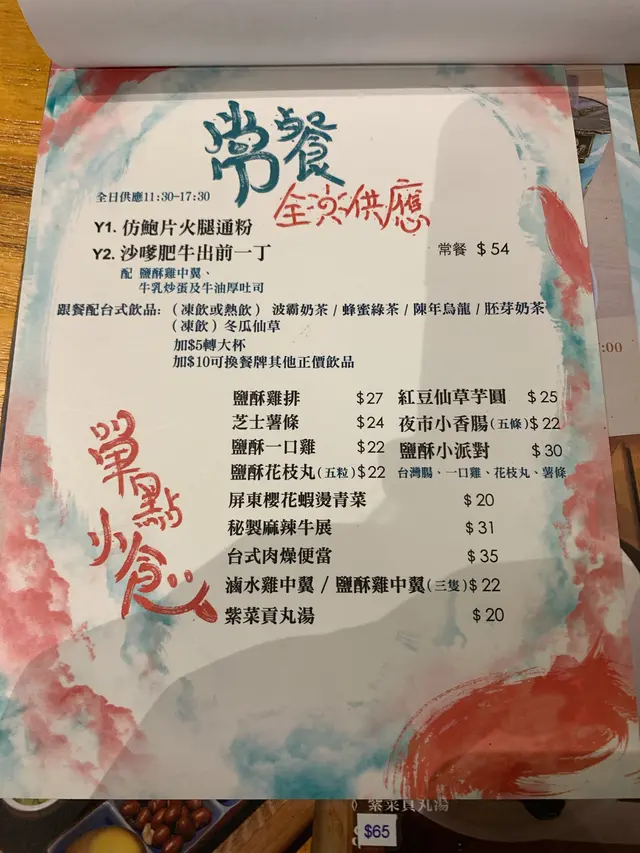 常餐
全日供應11:30-17:30
全日供應
Y1. 仿鮑片火腿通粉
Y2. 沙嗲肥牛出前一丁
常餐 $54
配 鹽酥雞中翼、
牛乳炒蛋及牛油厚吐司
跟餐配台式飲品:（凍飲或熱飲）波霸奶茶 / 蜂蜜綠茶 / 陳年烏龍 / 胚芽奶茶
（凍飲）冬瓜仙草
加$5轉大杯
加$10可換餐牌其他正價飲品
:00
單點小食
鹽酥雞排 $27 紅豆仙草芋圓 $25
芝士薯條 $24 夜市小香腸(五條) $22
鹽酥一口雞 $22 鹽酥小派對 $30
鹽酥花枝丸(五粒) $22 台灣腸、一口雞、花枝丸、薯條
屏東櫻花蝦燙青菜 $20
秘製麻辣牛展 $31
台式肉燥便當 $35
滷水雞中翼 / 鹽酥雞中翼(三隻) $22
紫菜貢丸湯 $20
紫菜貢丸湯
$65